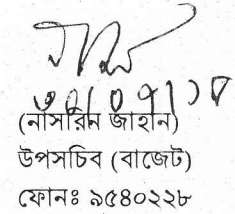 ৩০/০৭/১৮
(নাসরিন জাহান)
উপসচিব (বাজেট)
ফোনঃ ৯৫৪০২২৮